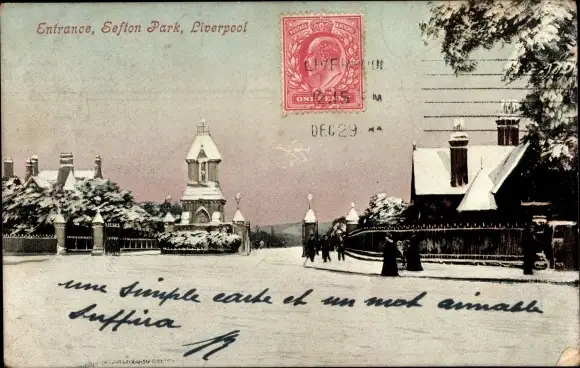 Entrance, Sefton Park, Liverpool
LIVERPOOL
9.15 M
DEC 29
ONE PENNY
une simple carte et un mot aimable
Suffira